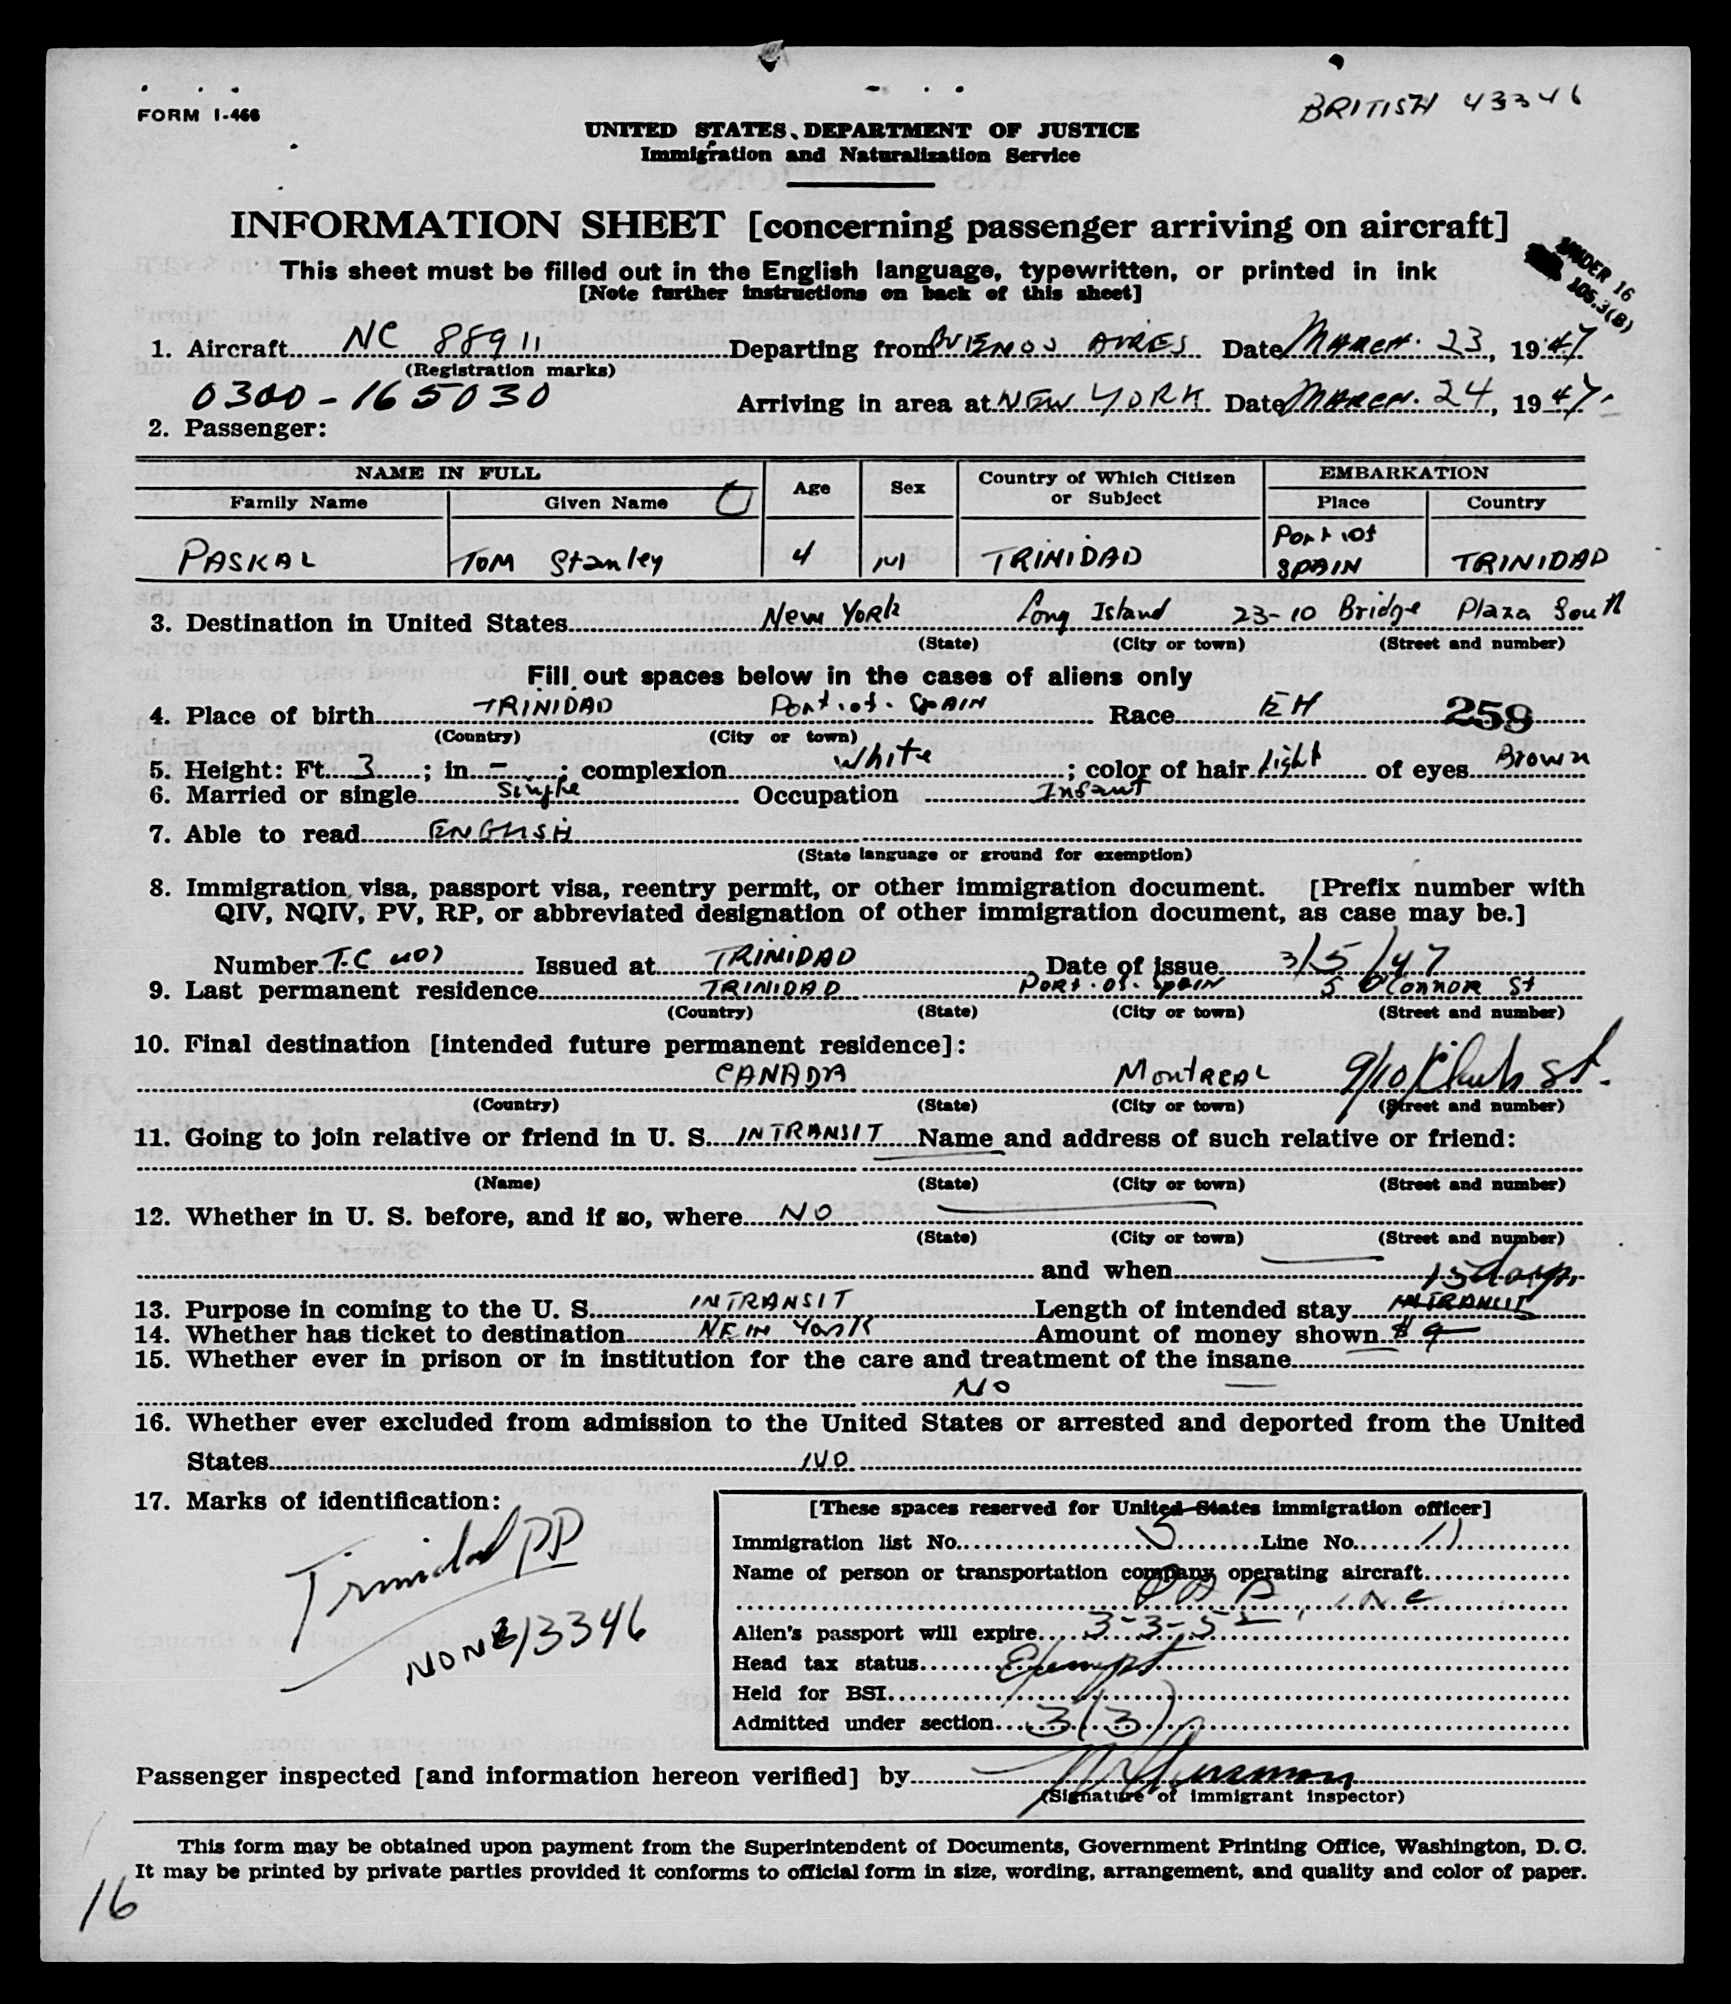 FORM I-466
BRITISH 43346
UNITED STATES DEPARTMENT OF JUSTICE
Immigration and Naturalization Service
INFORMATION SHEET [concerning passenger arriving on aircraft]
This sheet must be filled out in the English language, typewritten, or printed in ink
[Note further instructions on back of this sheet]
UNDER 16
106.3(B)
1. Aircraft NC 88911 Departing from BUENOS AIRES Date MARCH 23, 1947
(Registration marks)
0300-165030 Arriving in area at NEW YORK Date MARCH 24, 1947
2. Passenger:
NAME IN FULL Age Sex Country of Which Citizen or Subject EMBARKATION
Family Name Given Name Place Country
PASKAL TOM Stanley 4 M TRINIDAD Port of SPAIN TRINIDAD
3. Destination in United States New York Long Island 23-10 Bridge Plaza South
(State) (City or town) (Street and number)
Fill out spaces below in the cases of aliens only
4. Place of birth TRINIDAD Port.of.SPAIN Race EH 259
(Country) (City or town)
5. Height: Ft. 3; in. -; complexion White; color of hair light of eyes Brown
6. Married or single Single Occupation Infant
7. Able to read ENGLISH
(State language or ground for exemption)
8. Immigration visa, passport visa, reentry permit, or other immigration document. [Prefix number with
QIV, NQIV, PV, RP, or abbreviated designation of other immigration document, as case may be.]
Number T.C Issued at TRINIDAD Date of issue 3/5/47
9. Last permanent residence TRINIDAD PORT.OF.SPAIN 5 O'CONNOR St
(Country) (State) (City or town) (Street and number)
10. Final destination [intended future permanent residence]:
CANADA MONTREAL St.
(Country) (State) (City or town) (Street and number)
11. Going to join relative or friend in U. S. INTRANSIT Name and address of such relative or friend:
(Name) (State) (City or town) (Street and number)
12. Whether in U. S. before, and if so, where NO
(State) (City or town) (Street and number)
and when
15 days.
13. Purpose in coming to the U. S. INTRANSIT Length of intended stay INTRANSIT
14. Whether has ticket to destination NEW YORK Amount of money shown $ 9
15. Whether ever in prison or in institution for the care and treatment of the insane
NO
16. Whether ever excluded from admission to the United States or arrested and deported from the United
States NO
17. Marks of identification:
Trinidad PP
NONE 13346
[These spaces reserved for United States immigration officer]
Immigration list No. 5 Line No. 11
Name of person or transportation company operating aircraft
P A A, INC
Alien's passport will expire 3-3-52
Head tax status Exempt
Held for BSI
Admitted under section 3(3)
Passenger inspected [and information hereon verified] by
(Signature of immigrant inspector)
This form may be obtained upon payment from the Superintendent of Documents, Government Printing Office, Washington, D. C.
It may be printed by private parties provided it conforms to official form in size, wording, arrangement, and quality and color of paper.
16